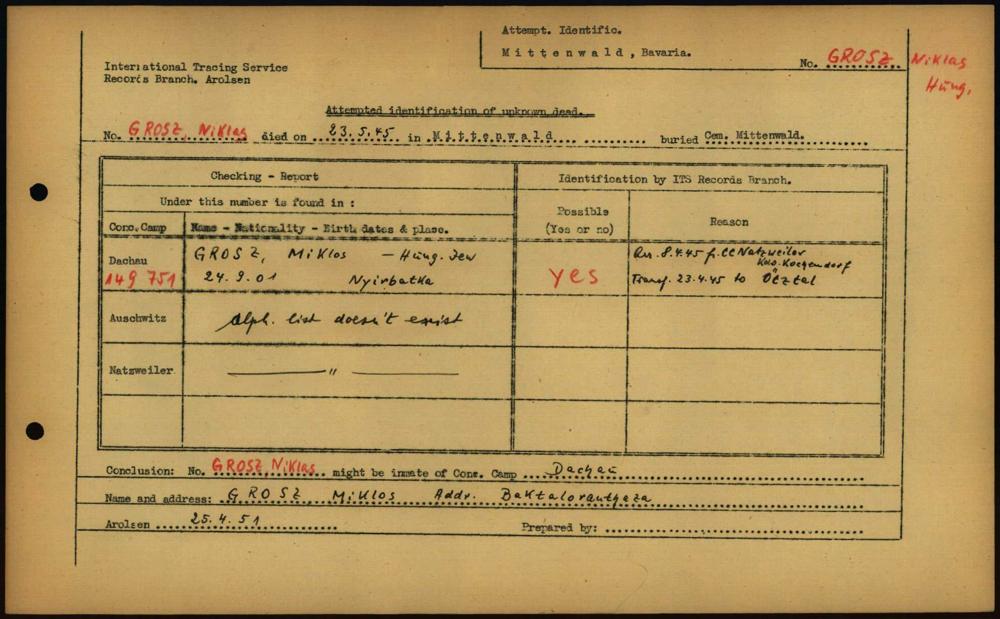 Attempt. Identific.
Mittenwald, Bavaria.
No. GROSZ, Niklas
Hung.
International Tracing Service
Records Branch. Arolsen
Attempted identification of unknown dead.
No. GROSZ, Niklas died on 23.5.45 in Mittenwald buried Cem. Mittenwald.
Checking - Report
Identification by ITS Records Branch.
Under this number is found in :
Possible
(Yes or no)
Reason
Conc. Camp
Name - Nationality - Birth dates & place.
Dachau
149 751
GROSZ, Miklos - Hung. Jew
24.9.01 Nyirbatka
yes
Arr. 8.4.45 f. CC Natzweiler
Kdo. Kochendorf
Transf. 23.4.45 to Ötztal
Auschwitz
Alph. list doesn't exist
Natzweiler
— " —
Conclusion: No. GROSZ, Niklas might be inmate of Conc. Camp Dachau
Name and address: GROSZ Miklos Addr.
Arolsen 25.4.51
Prepared by: